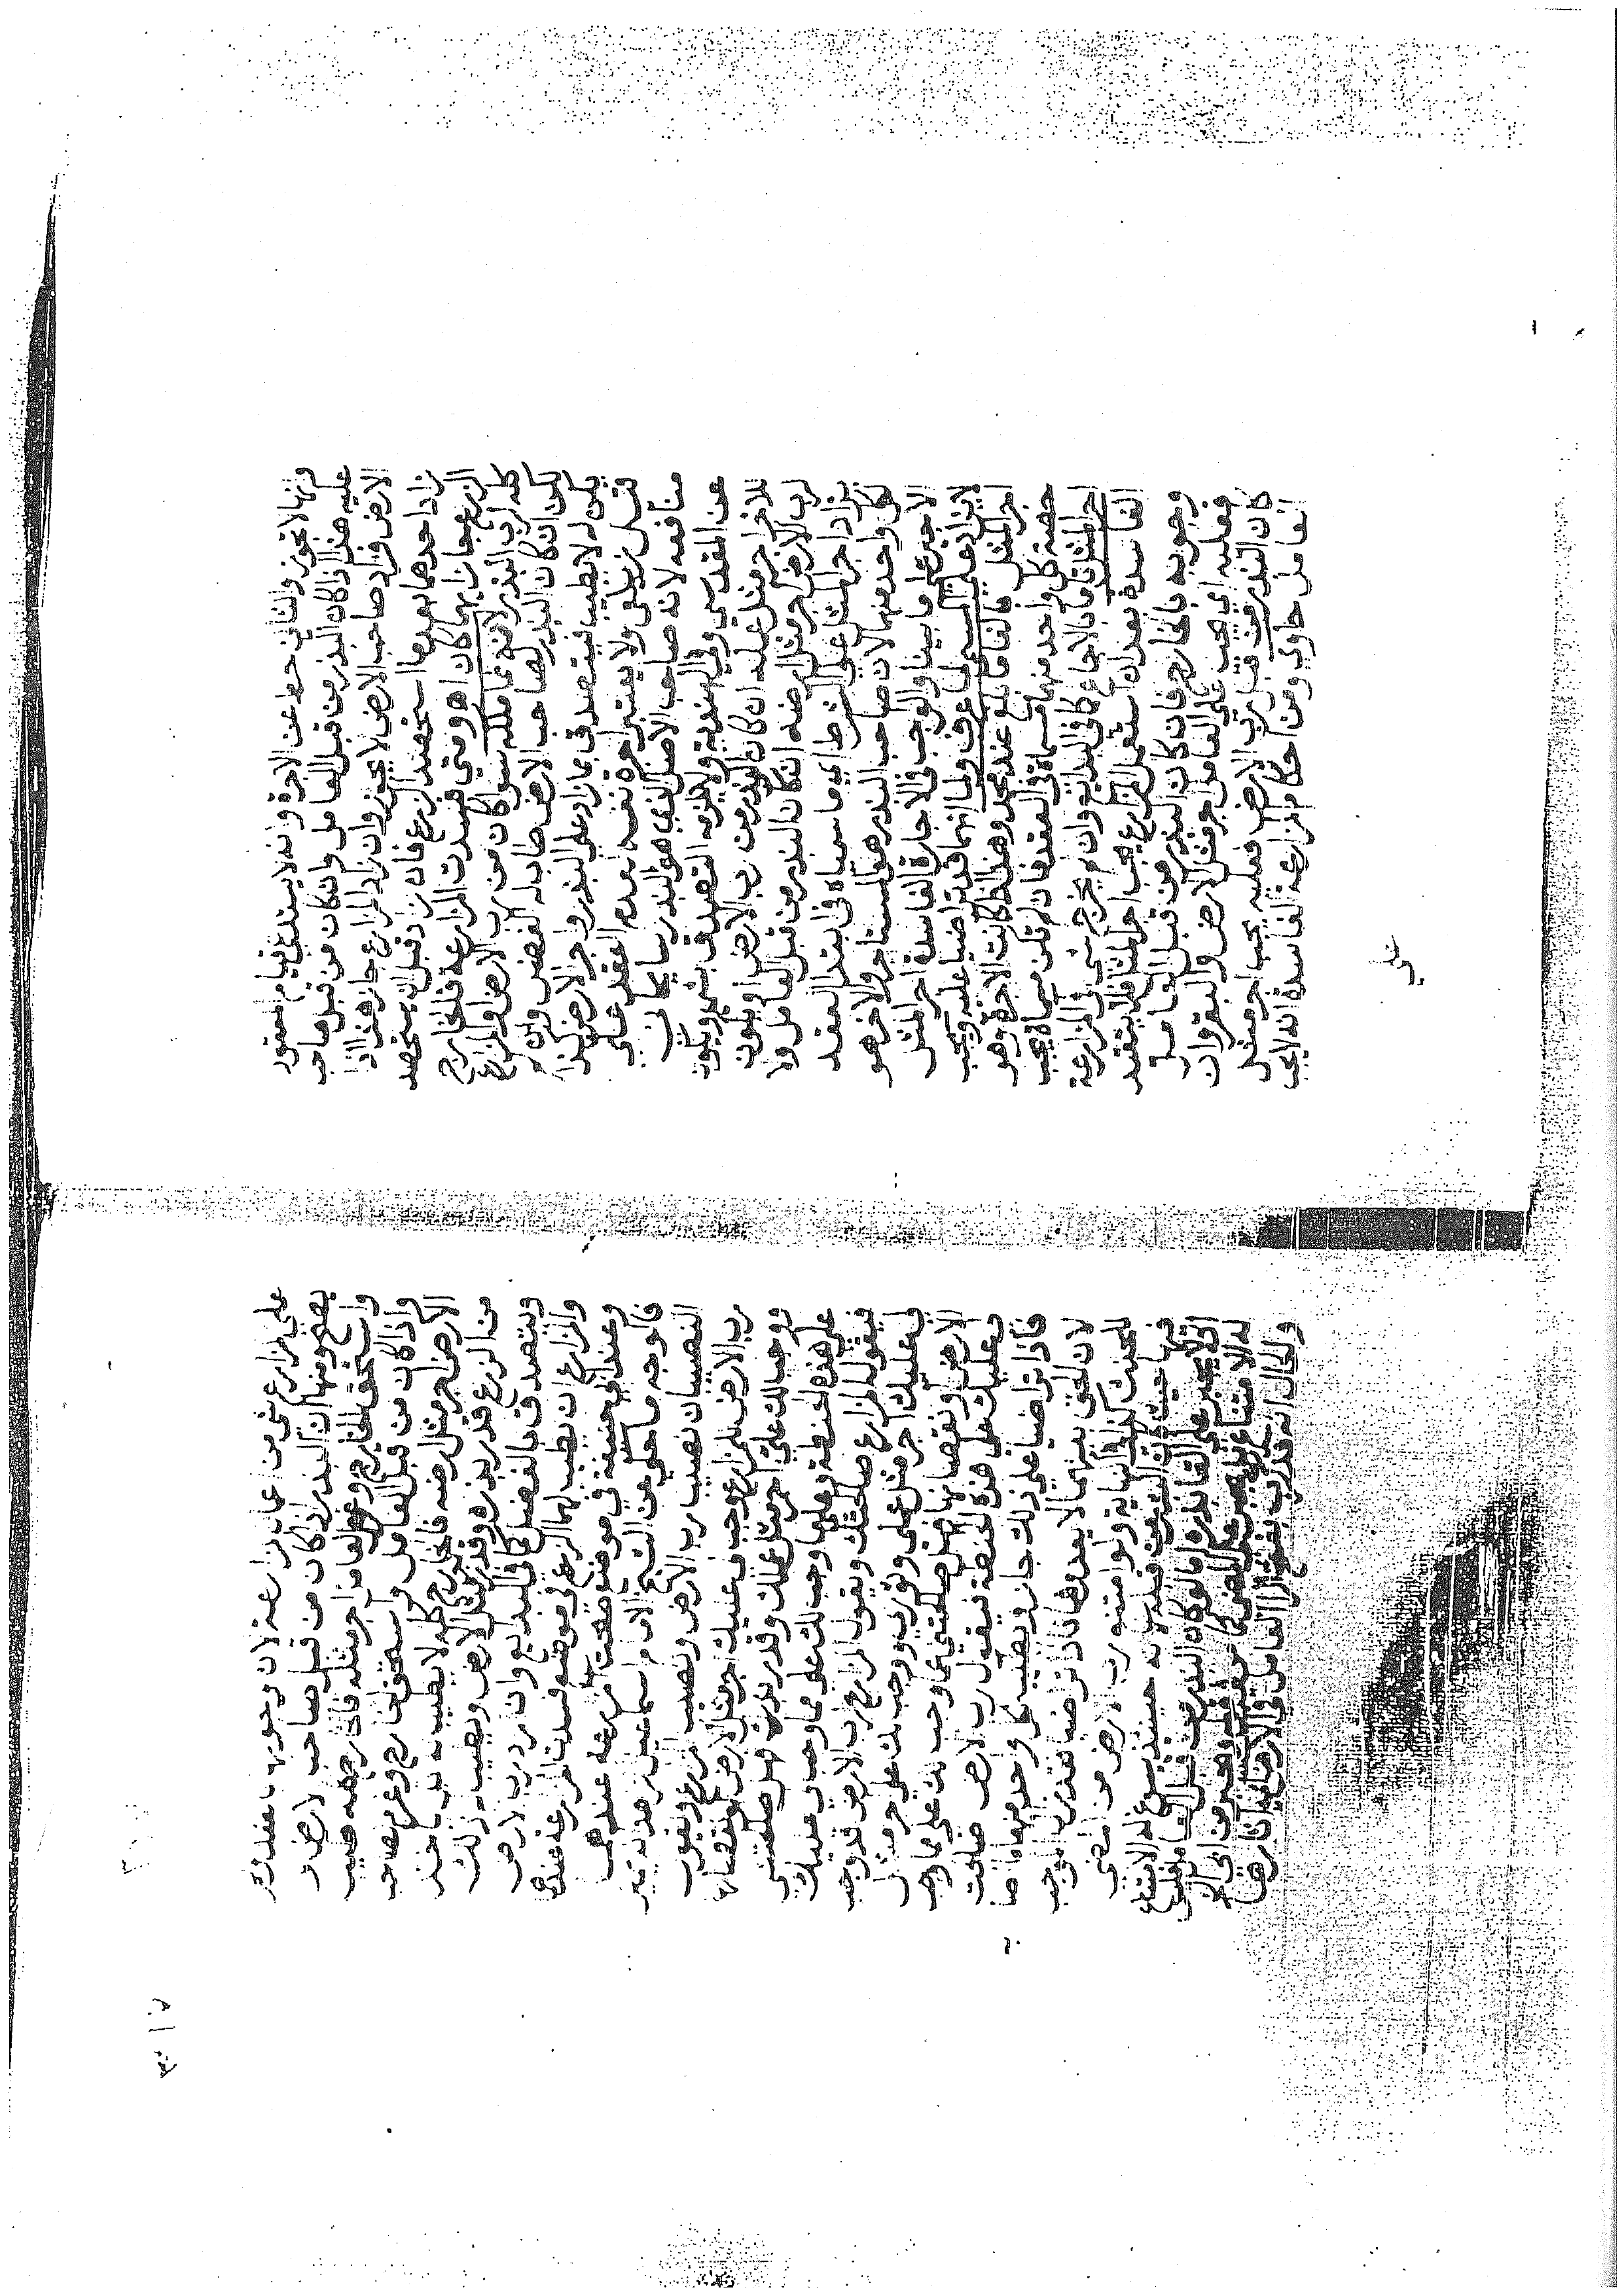 ومنها لا تجوز والثاني حط عن الاجرة وانه لا يستدعي قيام المعقود
عليه هذا اذا كان البذر من قبل العامل وان كان من قبل صاحب
الارض فزاد صاحب الارض لا يجوز وان زاد المزارع جاز هذا اذا
زاد احدهما بعد ما استحصد الزرع فان زاد قبل ان يستحصد
الزرع جاز ايهما كان اه ومتى فسدت المزارعة فالخارج
كله لرب البذر لانه نما ملكه سواء كان من رب الارض او المزارع
لكن ان كان البذر لصاحب الارض طاب له الفضل وان لم
يكن له لا يطيب فيتصدق بما زاد على البذر واجر الارض كذا
فتيل زيلعي ولا يعتبر اجرة نفسه لعدم العقد على
منافعه لانه صاحب الاصل الذي هو البذر سايحاني
عن المقدسي وفي الهندية ولا يلزمه التصدق بشي ويكون
للاخر اجر مثل عمله ان كان البذر من رب الارض او يكون
لرب الارض اجر مثل ارضه ان كان البذر من قبل العامل ولا
يزاد اجر المثل على الشرط اي ما سمياه في ابتداء العقد
لكل واحد منهما لان صاحب البذر هو المستاجر والاخر هو
الاجير على ما بينا والواجب في الاجارة الفاسدة اجر المثل
لا يزاد على المسمى لما عرف ولما انهما قد تراضيا عليه ويجب
اجر المثل بالغا ما بلغ عند محمد وهذا اذا كانت الاجرة وهو
حصة كل واحد منهما مسماة في العقد فان لم تكن مسماة يجب
اجر المثل تاما بالاجماع كما في البدايع وان لم يخرج شي في المزارعة
الفاسدة بعد ان استعمل المزارع يجب اجر المثل فلا يتقيد
وجوبه بالخارج فان كان البذر من قبل العامل
فعليه يجب اجر مثل الارض والبقر وان
كان البذر من قبل رب الارض فعليه اي يجب على العامل اجر مثل
العامل حاوي ومن احكام المزارعة الفاسدة انه لا يجب
على
على المزارع شي من اعمال المزارعة لان وجوبها بالعقد ولم
يصح ومنها ان البذر اذا كان من قبل صاحب الارض و
واستحق الخارج وغرم للعامل اجر مثله فالخارج كله طيب
واذا كان من قبل العامل واستحق الخارج وغرم لصاحب
الارض اجر مثل ارضه فالخارج كله لا يطيب له بل ياخذ
من الزرع قدر بذره وقدر اجر مثل الارض ويطيب له ذلك
ويتصدق بالفضل كما في البدايع وان اراد رب الارض
والمزارع ان يطيب لهما الزرع في موضع فسدت المزارعة عندهما
وعند ابي حنيفة في موضع صحت المزارعة عندهما
فالوجه ما حكي عن الشيخ الامام اسماعيل الزاهد انه يميز
النصيبان نصيب رب الارض ونصيب المزارع ويقول
رب الارض للمزارع وجب لي عليك اجر مثل الارض او نقصانها
ووجب لك علي اجر مثل عملك وقدر بذرك فهل صالحتني
على هذه الحنطة وعلى ما وجب لك علي مما وجب لي عليك
فيقول المزارع صالحتك ويقول المزارع لرب الارض قد وجب
لي عليك اجر مثل عملي وبذري ووجب لك علي اجر مثل
الارض او نقصانها فهل صالحتني بما وجب لك علي مما وجب
لي عليك على هذه الحنطة فيقول رب الارض صالحت
فاذا تراضيا على ذلك جاز ويطيب لكل واحد منهما ما اصابه
لان الحق بينهما لا يعدوهما فاذا تراضيا فقد زال الموجب
للخبث كذا في النهاية ولو امتنع رب الارض من المضي
فيها حيث كان البذر من قبله لانه حينئذ يسوغ له الامتناع
لانه لا يجبر على القاء بذره اما لو كان البذر من قبل العامل فليس
له الامتناع بل يجبر على المضي كما
والحال انه قد كرب بفتح الراء العامل في الارض اي اثارها